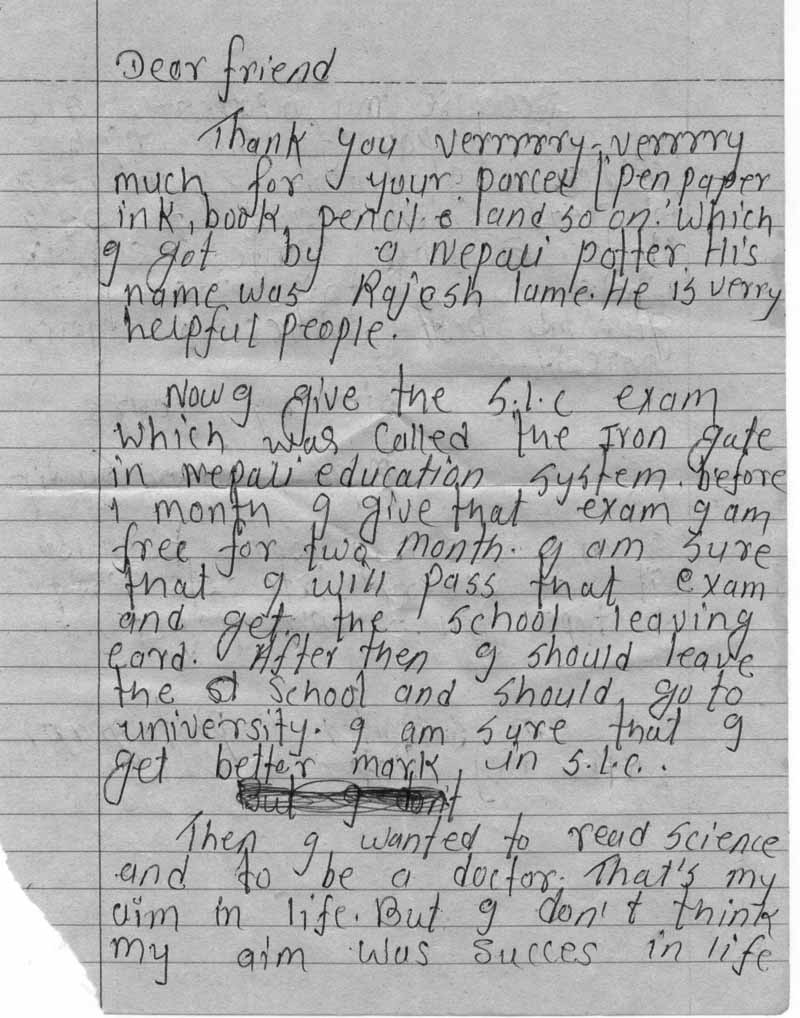 Dear friend
Thank you verrrrry-verrrrry
much for your parcel [pen paper
ink, book, pencil e and so on. Which
I got by a Nepali potter. His
name was Rajesh lame. He is verry
helpful people.
Now I give the S.l.c exam
which was called the Iron gate
in nepali education system. before
1 month I give that exam I am
free for two month. I am sure
that I will pass that exam
and get the school leaving
card. After then I should leave
the st school and should go to
university. I am sure that I
get better mark in S.l.c..
but I don't
Then I wanted to read science
and to be a doctor. That's my
aim in life. But I don't think
my aim was succes in life